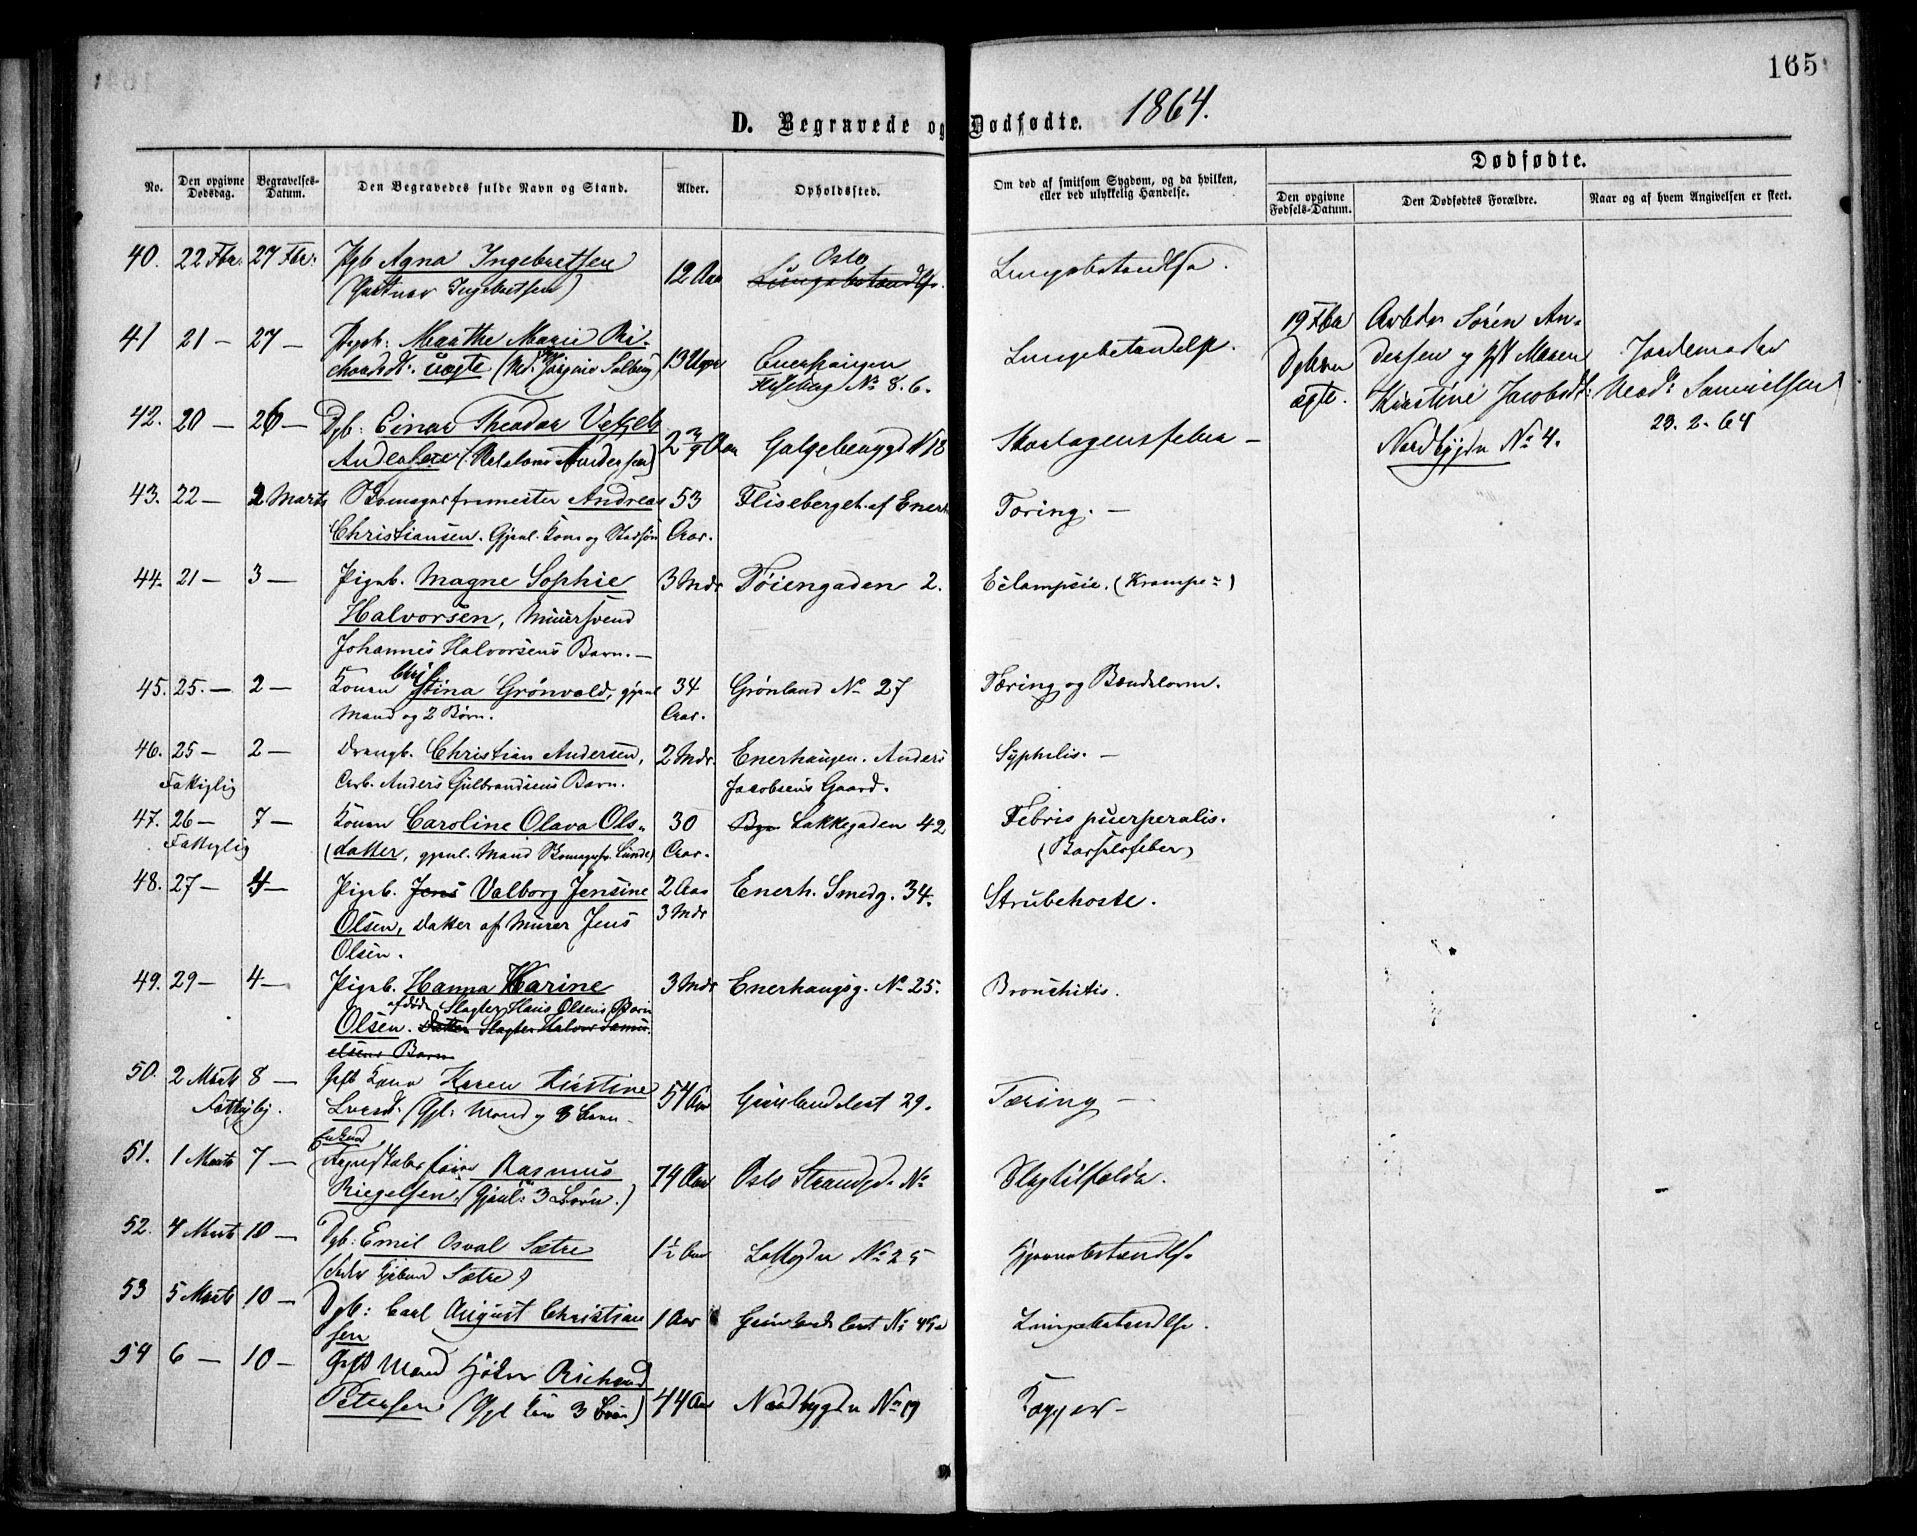 165
D. Begravede og Dødfødte. 1864.
No. | Den opgivne Dødsdag. | Begravelses-Datum. | Den Begravedes fulde Navn og Stand. | Alder. | Opholdssted. | Om død af smitsom Sygdom, og da hvilken, eller ved ulykkelig Hændelse. | Dødfødte.
Den opgivne Fødsels-Datum. | Den Dødfødtes Forældre. | Naar og af hvem Angivelsen er skeet.
40. 22 Fbr: 27 Fbr: Pgb Agna Ingebretsen 12 Aar Oslo Lungebetændelse.
(Gartner Ingebretsen) Lungebetændelse
41 21 — 27 — Pigeb: Marthe Marie Ri- 13 Uger Enerhaugen Lungebetændelse.
chardsdt: uægte No 8. 6.
19 Fbr Arbeider Søren An-
dersen og Maren Jordemoder
ægte. Kirstine Jacobsdt: Samuelsen
Nordbygdn No 4. 23-2-64
42. 20 — 26 — Dgb: Einar Theodor
Andersen Andersen) Skarlagensfeber —
43. 22 — 2 Marts Andreas 53 Fliseberget af Enerh Tæring. —
Christiansen. Gjenl. Kone og Aar.
44. 21 — 3 — Pigeb. Magne Sophie 3 Mdr Tøiengaden 2. Eclampsie. (Krampe)
Halvorsen, Muursvend
Johannes Halvorsens Barn. —
45. 25. — 2 — Konen Christina Grønvold, gjenl 34 Grønland No 27 Tæring og Bændelorm.
Mand og 2 Børn. Aar.
46. 25 — 2 — Drengb. Christian Andersen, 2 Mdr. Enerhaugen. Anders Syphilis. —
Fattiglig Arb. Anders Gulbrandsens Barn. Jacobsens Gaard.
47. 26 — 7 — Konen Caroline Olava Ols- 30 Lakkegaden 42 Febris puerperalis.
Fattiglig (datter, gjenl. Mand Aar. (Barselsfeber)
48. 27 — 4 — Pigeb. Jens Valborg Jensine 2 Aar Enerh. Smedg. 34. Strubehoste.
Olsen, Datter af Murer Jens 3 Mdr
Olsen.
49. 29 — 4 — Pigeb. Hanna Karine 3 Mdr Enerhaugsg. No 25. Bronchitis.
afdøde Slagter Hans Olsens Barn
Olsen. Datter Slagter Halvor Samu-
elsens Barn
50. 2 Marts 8 — Gift Kone Karen Kirstine 54 Aar Grønlandsleret 29. Tæring —
Fattiglig. Larsdt: (Gjl: Mand og 8 Børn
51. 1 Marts 7 — Enkemd Rasmus 74 Aar Oslo Strandgd. No Slagtilfælde.
Riegelsen. (Gjenl: 3 Børn.)
52. 4 Marts 10 — Dgb: Emil Osval Sætre 1½ Aar Lakkegdn No 25 Hjernebetændelse
Sætre)
53 5 Marts 10 — Dgb: Carl August Christian 1 Aar Grønlandsleret Lungebetændelse.
sen
54 6 — 10 — Gift Mand Richard
Petersen (Gjl Kone 3 Børn) 44 Aar Nordbygdn No 19 Kopper —